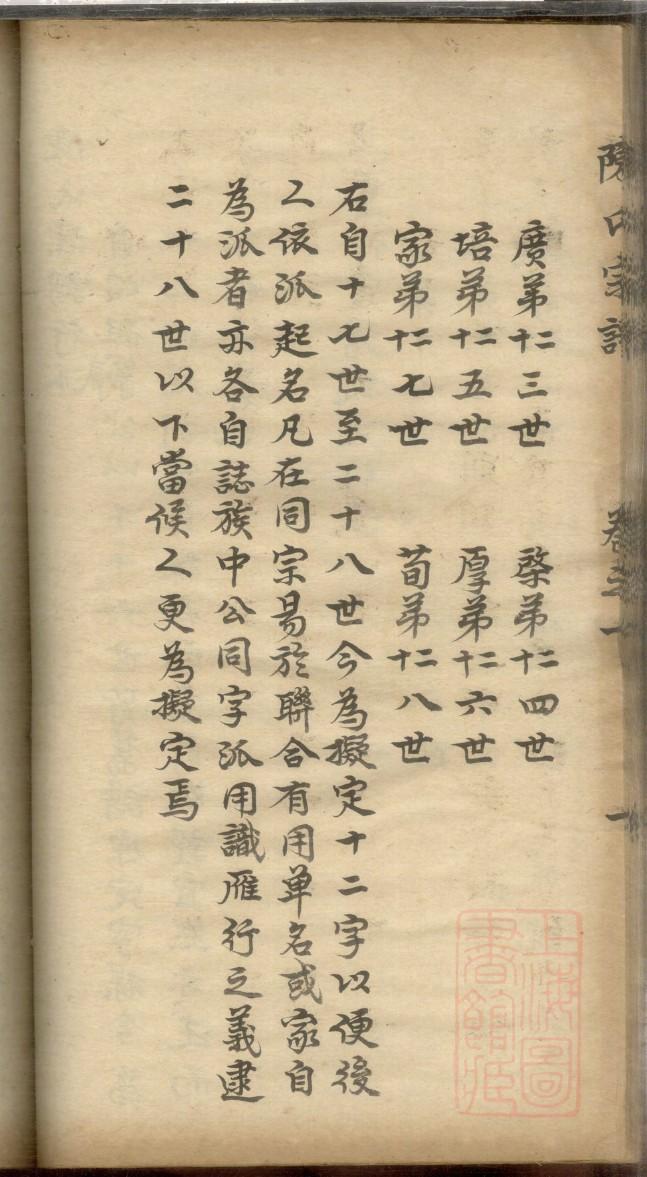 宗譜
卷之一
一
廣第二十三世　棨第二十四世
培第二十五世　厚第二十六世
家第二十七世　荀第二十八世
右自十七世至二十八世今為擬定十二字以便後
人依派起名凡在同宗易於聯合有用单名或家自
為派者亦各自誌族中公同字派用識雁行之義逮
二十八世以下當候人更為擬定焉
上海圖
書館藏